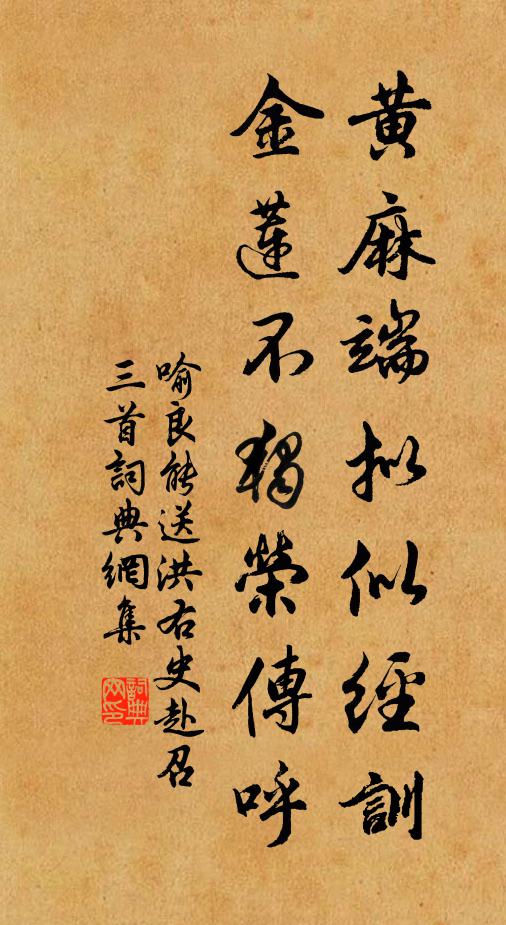 黄麻端拟似經訓
金蓮不獨榮傳呼
喻良能送洪右史赴召
三首詞典網集
詞典
网印